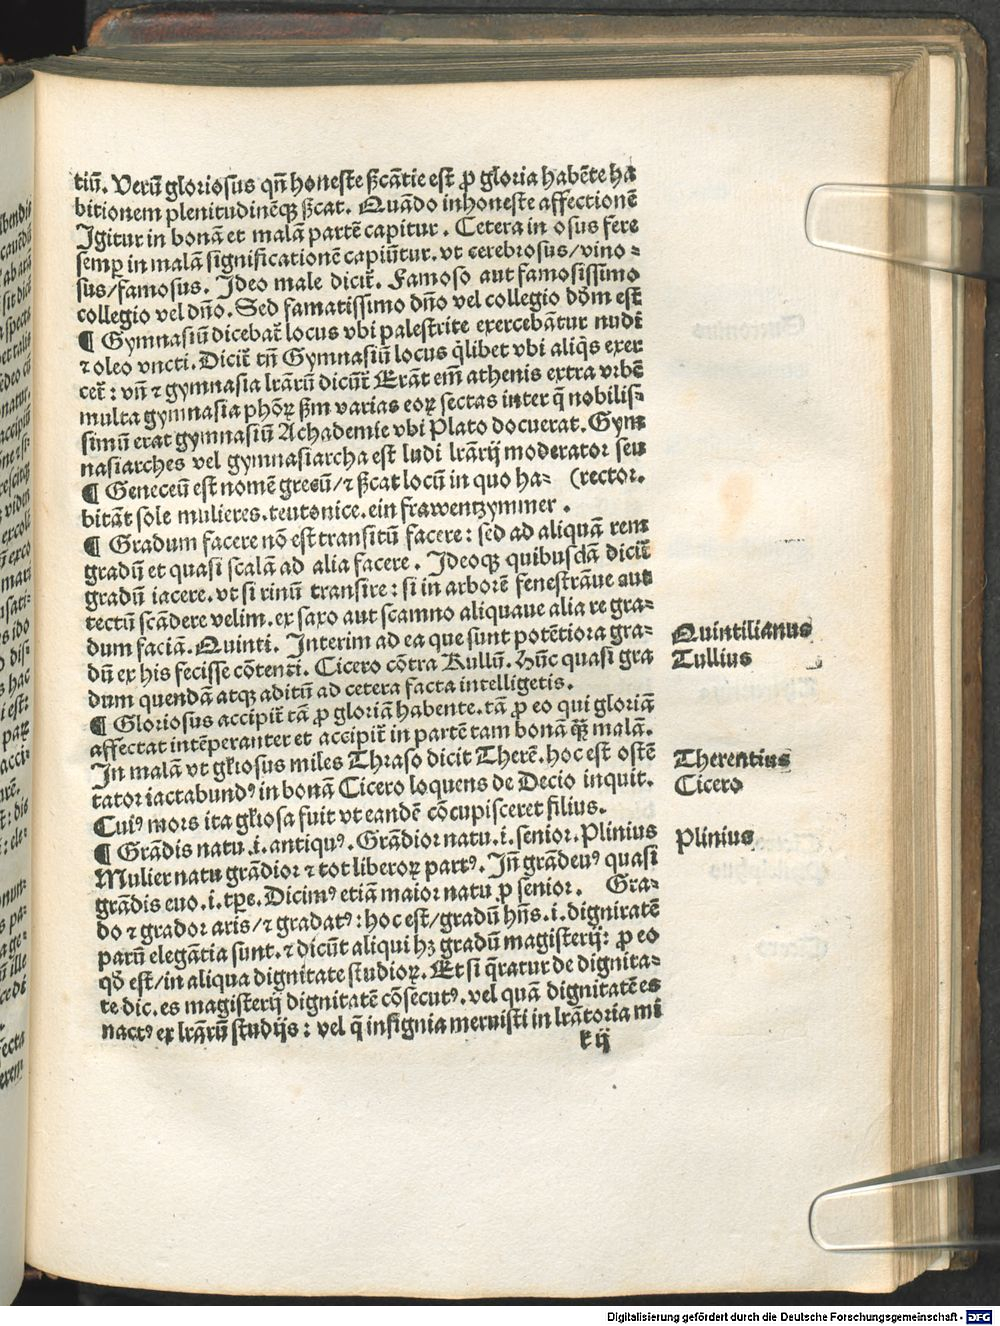 tiū. Verū gloriosus qn̄ honeste ẞcātie est ꝓ gloria habēte ha
bitionem plenitudinēqꝫ ẞcat. Quādo inhoneste affectionē
Igitur in bonā et malā partē capitur. Cetera in osus fere
semꝑ in malā significationē capiūtur. vt cerebrosus/vino-
sus/famosus. Ideo male dicit̄. Famoso aut famosissimo
collegio vel dn̄o. Sed famatissimo dn̄o vel collegio dd̄m est
¶ Gymnasiū dicebat̄ locus vbi palestrite exercebātur nudi
⁊ oleo vncti. Dicit̄ tn̄ Gymnasiū locus q̄libet vbi aliq̄s exer
cet̄: vn̄ ⁊ gymnasia lr̄arū dicūt̄ Erāt em̄ athenis extra vrbē
multa gymnasia phōꝝ ẞm varias eoꝝ sectas inter q̄ nobilis-
simū erat gymnasiū Achademie vbi Plato docuerat. Gym
nasiarches vel gymnasiarcha est ludi lr̄arij moderator seu
¶ Geneceū est nomē grecū/⁊ ẞcat locū in quo ha- (rector.
bitāt sole mulieres. teutonice. ein frawentzymmer.
¶ Gradum facere nō est transitū facere: sed ad aliquā rem
gradū et quasi scalā ad alia facere. Ideoqꝫ quibusdā dicit̄
gradū iacere. vt si rinū transire: si in arborē fenestrāue aut
tectū scādere velim. ex saxo aut scamno aliquaue alia re gra-
dum faciā. Quinti. Interim ad ea que sunt potētiora gra-
dū ex his fecisse cōtenti. Cicero cōtra Rullū. Hūc quasi gra
dum quendā atqꝫ aditū ad cetera facta intelligetis.
¶ Gloriosus accipit̄ tā ꝓ gloriā habente. tā ꝓ eo qui gloriā
affectat intēperanter et accipit̄ in partē tam bonā qꝫ̄ malā.
In malā vt gl̄iosus miles Thraso dicit Therē. hoc est ostē
tator iactabundꝰ in bonā Cicero loquens de Decio inquit.
Cuiꝰ mors ita gl̄iosa fuit vt eandē cōcupisceret filius.
¶ Grādis natu .i. antiquꝰ. Grādior natu .i. senior. Plinius
Mulier natu grādior ⁊ tot liberoꝝ partꝰ. In̄ grādeuꝰ quasi
grādis euo .i. tꝑe. Dicimꝰ etiā maior natu ꝓ senior. Gra-
do ⁊ grador aris/⁊ gradatꝰ: hoc est/gradū hn̄s .i. dignitatē
parū elegātia sunt. ⁊ dicūt aliqui hꝫ gradū magisterij: ꝓ eo
qd̄ est/in aliqua dignitate studioꝝ. Et si q̄ratur de dignita-
te dic. es magisterij dignitatē cōsecutꝰ. vel quā dignitatē es
nactꝰ ex lr̄arū studijs: vel q̄ insignia meruisti in lr̄atoria mi
k ij
Quintilianus
Tullius
Therentius
Cicero
Plinius
Digitalisierung gefördert durch die Deutsche Forschungsgemeinschaft - DFG